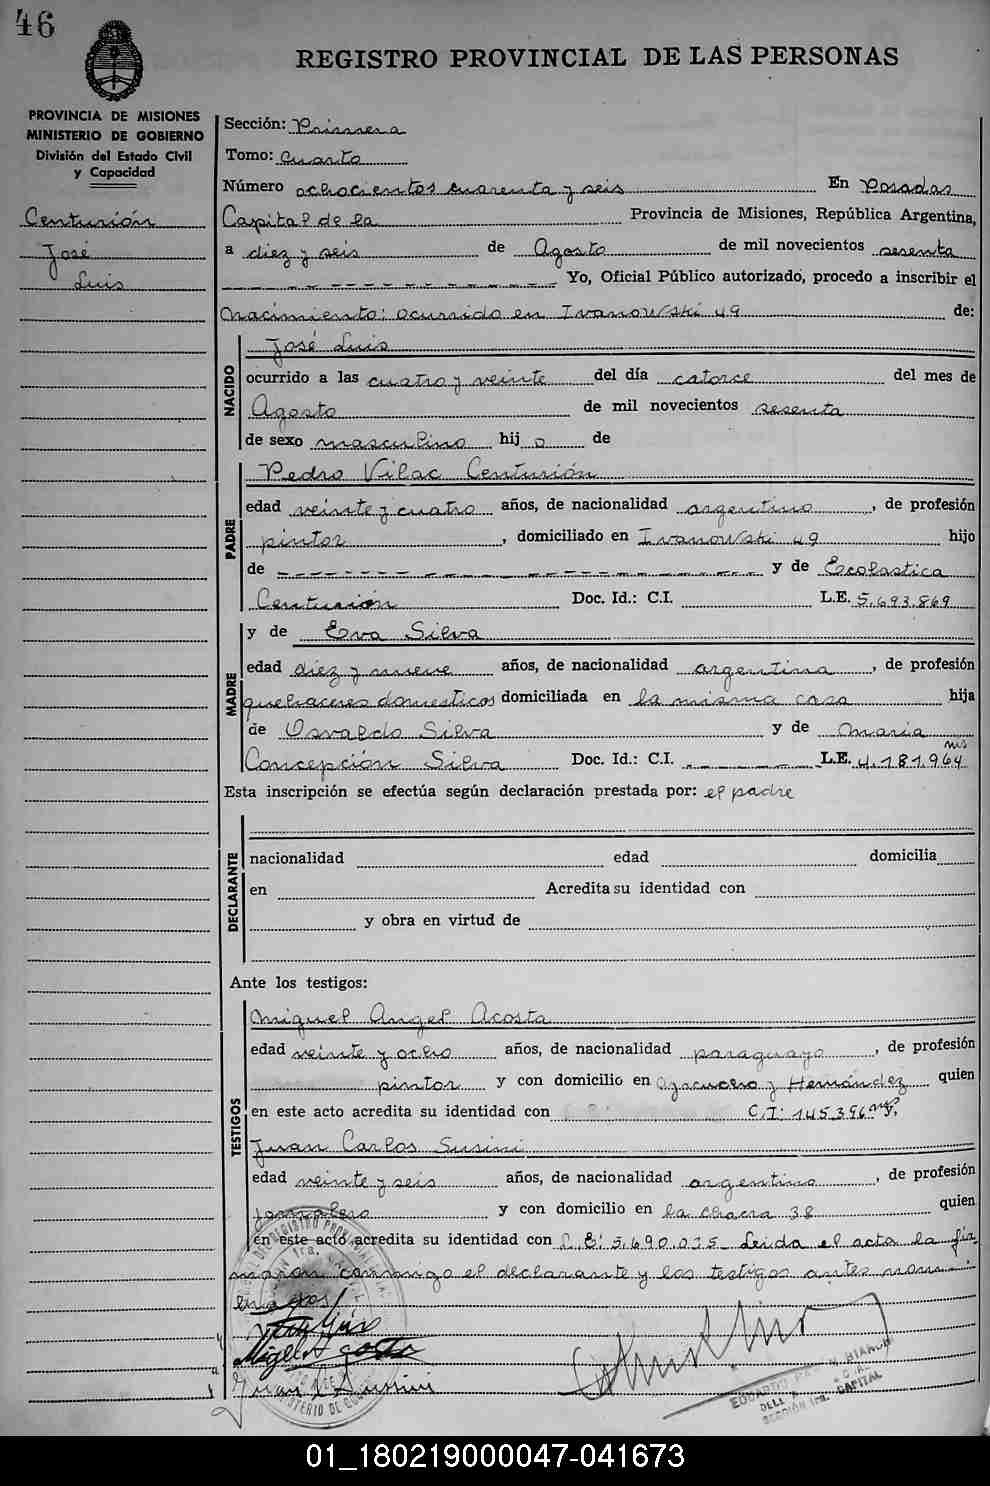 46
REGISTRO PROVINCIAL DE LAS PERSONAS
PROVINCIA DE MISIONES
MINISTERIO DE GOBIERNO
División del Estado Civil
y Capacidad
Centurión
José
Luis
Sección: Primera
Tomo: Cuarto
Número ochocientos cuarenta y seis En Posadas
Capital de la Provincia de Misiones, República Argentina,
a diez y seis de Agosto de mil novecientos sesenta
Yo, Oficial Público autorizado, procedo a inscribir el
Nacimiento: ocurrido en Ivanowski 49 de:
NACIDO
José Luis
ocurrido a las cuatro y veinte del día catorce del mes de
Agosto de mil novecientos sesenta
de sexo masculino hijo de
PADRE
Pedro Vilac Centurión
edad veinte y cuatro años, de nacionalidad argentino, de profesión
pintor, domiciliado en Ivanowski 49 hijo
de y de Escolastica
Centurión Doc. Id.: C.I. L.E. 5.693.869
MADRE
y de Eva Silva
edad diez y nueve años, de nacionalidad argentina, de profesión
quehaceres domesticos domiciliada en la misma casa hija
de Osvaldo Silva y de Maria
Concepción Silva Doc. Id.: C.I. L.E. 4.181.964 mis
Esta inscripción se efectúa según declaración prestada por: el padre
DECLARANTE
nacionalidad edad domicilia
en Acredita su identidad con
y obra en virtud de
Ante los testigos:
TESTIGOS
Miguel Angel Acosta
edad veinte y ocho años, de nacionalidad paraguayo, de profesión
pintor y con domicilio en Ayacucho y Hernández quien
en este acto acredita su identidad con C.I: 145396
Juan Carlos Susini
edad veinte y seis años, de nacionalidad argentino, de profesión
y con domicilio en la chacra 38 quien
en este acto acredita su identidad con L.E: 5.690.035 Leida el acta la fir
maron conmigo el declarante y los testigos antes nom
Miguel Acosta
Juan C Susini
EDUARDO BIANCHI
SECCIÓN 1ra. CAPITAL
01_180219000047-041673